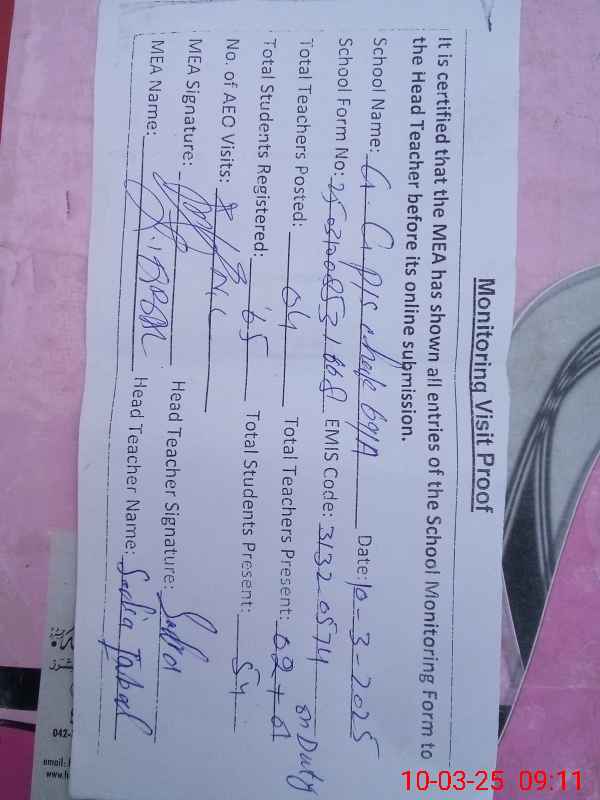 Monitoring Visit Proof
It is certified that the MEA has shown all entries of the School Monitoring Form to
the Head Teacher before its online submission.
School Name: G. G P/S chak 69/A Date: 10-3-2025
School Form No: EMIS Code: 31320574
Total Teachers Posted: 04 Total Teachers Present: 02+01 on Duty
Total Students Registered: 65 Total Students Present: 54
No. of AEO Visits:
MEA Signature: Head Teacher Signature: Sadia
MEA Name: Head Teacher Name: Sadia Iqbal
042-
email:
www.
10-03-25 09:11